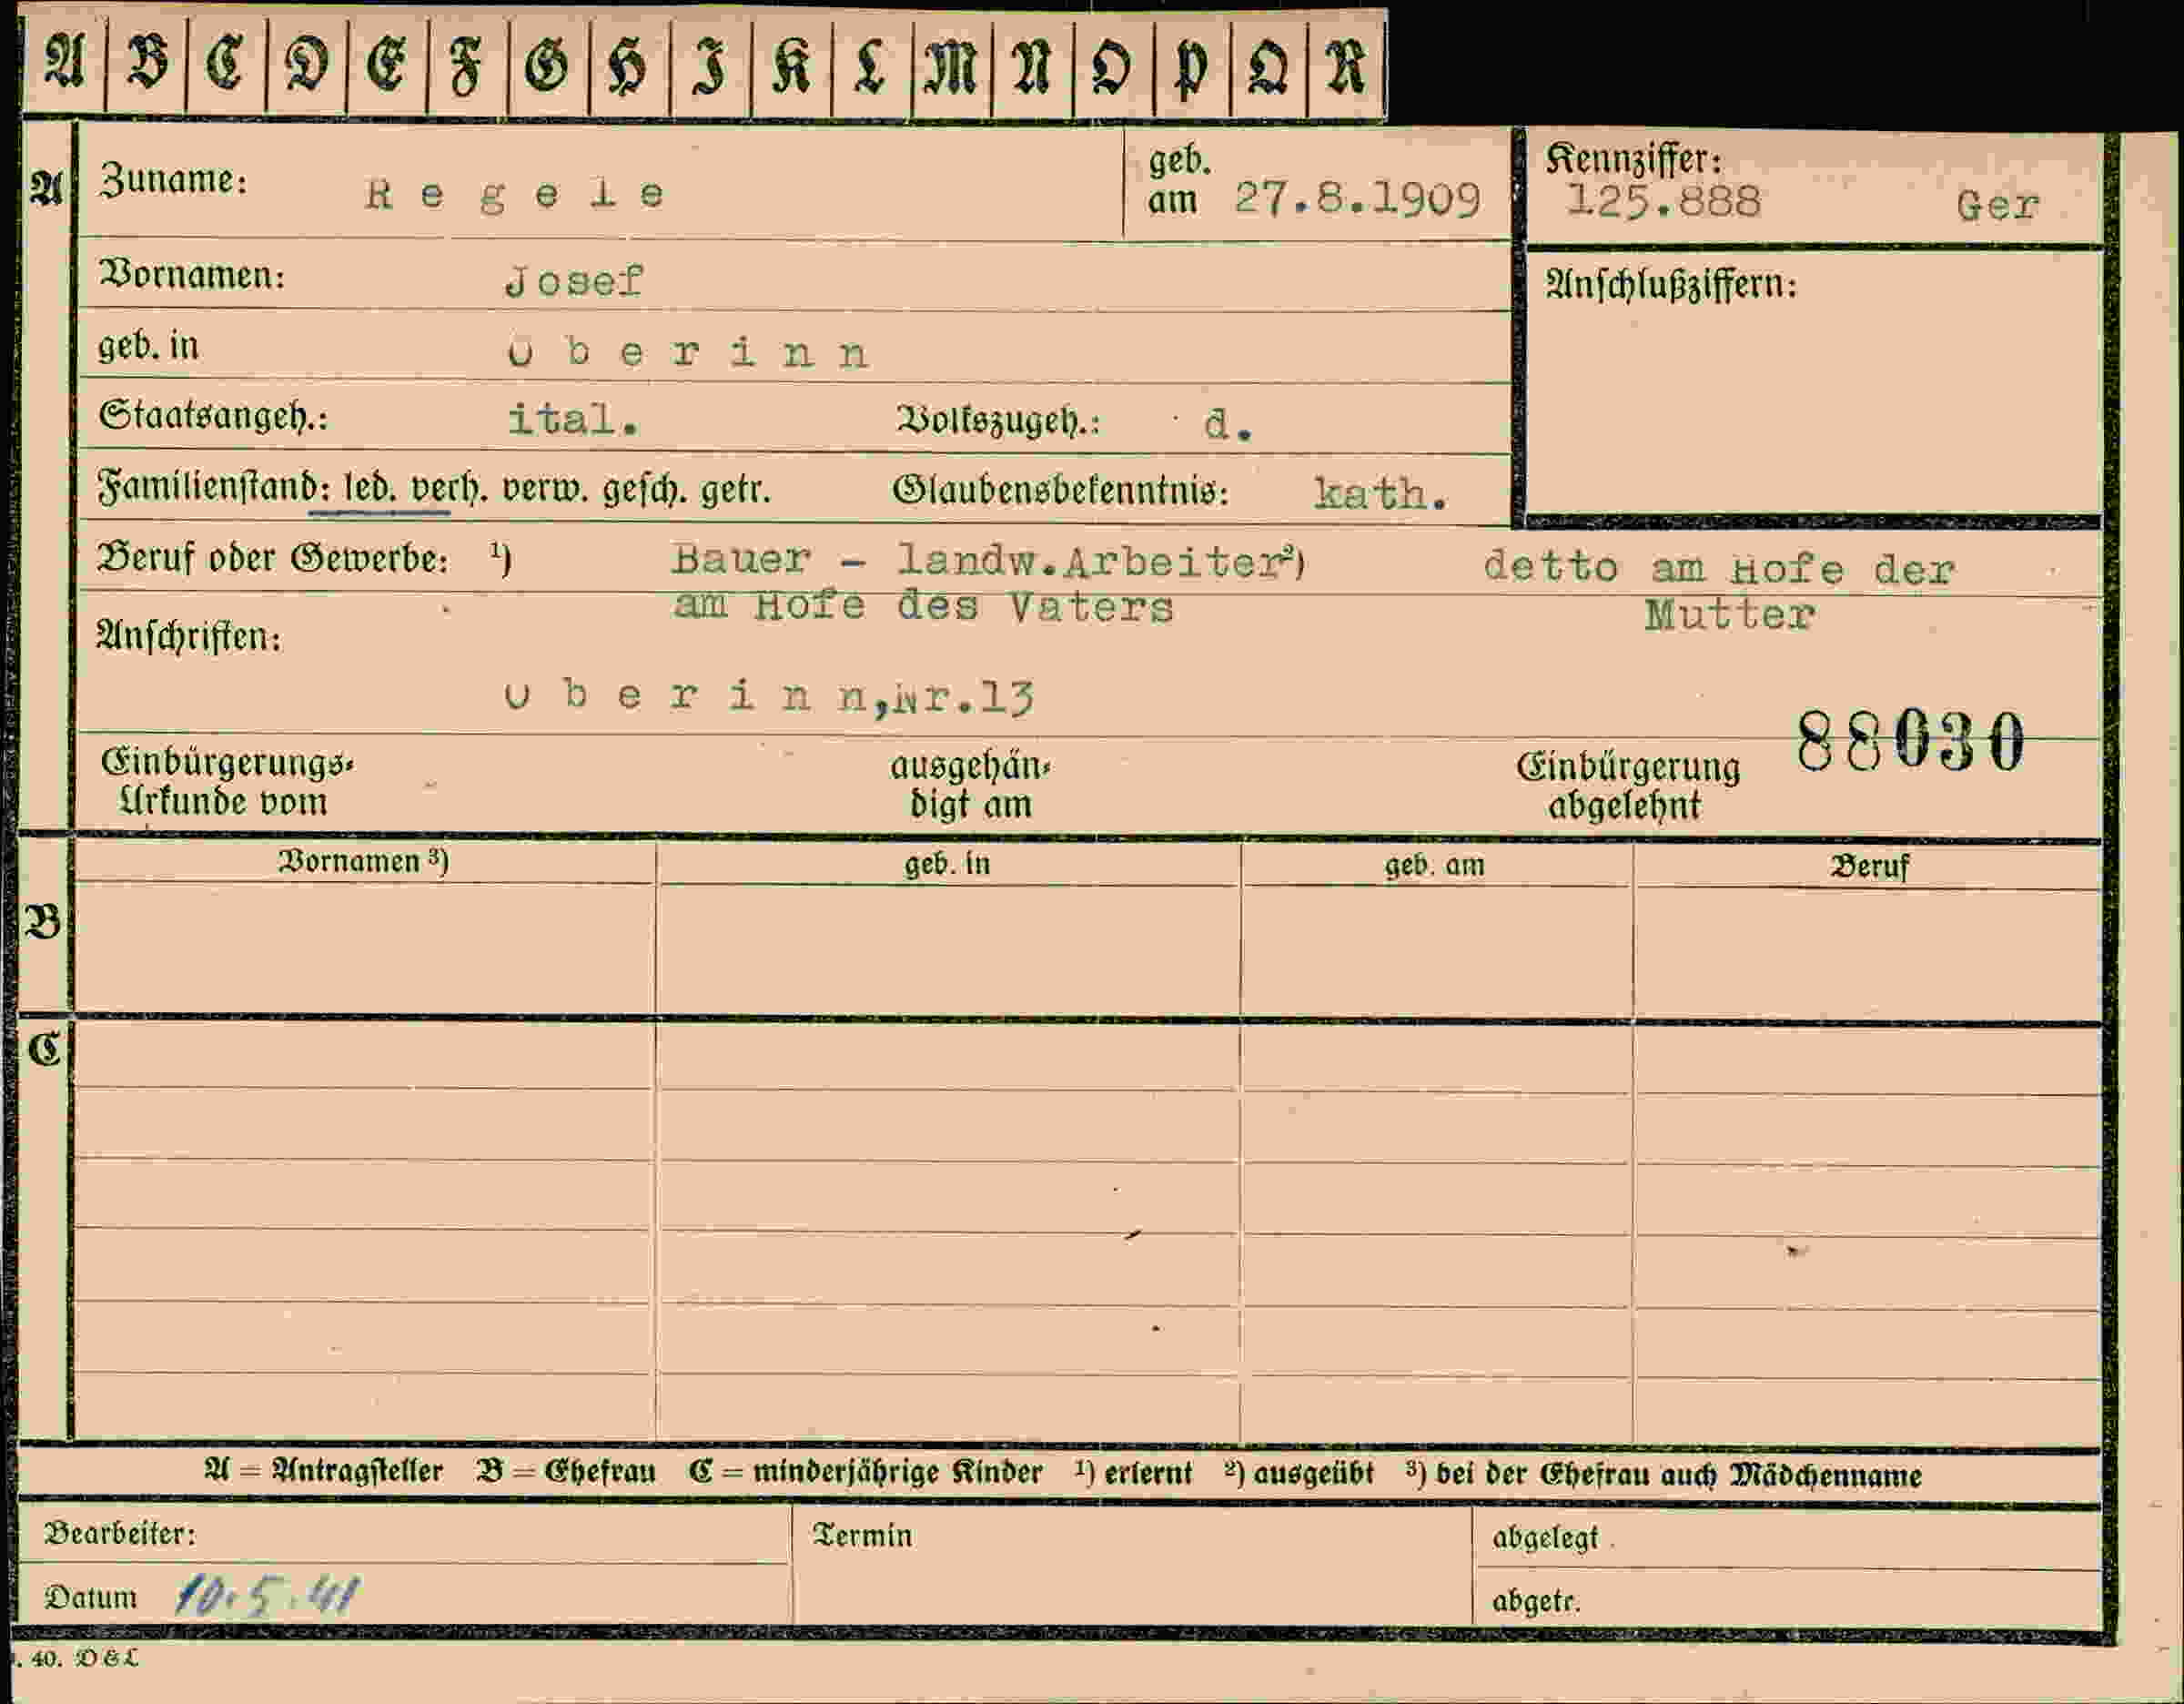 A B C D E F G H I K L M N O P Q R
A Zuname: Regele geb. am 27.8.1909 Kennziffer: 125.888 Ger
Vornamen: Josef Anschlußziffern:
geb. in Oberinn
Staatsangeh.: ital. Volkszugeh.: d.
Familienstand: led. verh. verw. gesch. getr. Glaubensbekenntnis: kath.
Beruf oder Gewerbe: ¹) Bauer - landw.Arbeiter²) detto am Hofe der
am Hofe des Vaters Mutter
Anschriften:
Oberinn,Nr.13
88030
Einbürgerungs- ausgehän- Einbürgerung
Urkunde vom digt am abgelehnt
Vornamen ³) geb. in geb. am Beruf
B
C
A = Antragsteller B = Ehefrau C = minderjährige Kinder ¹) erlernt ²) ausgeübt ³) bei der Ehefrau auch Mädchenname
Bearbeiter: Termin abgelegt
Datum 10.5.41 abgetr.
. 40. D & L